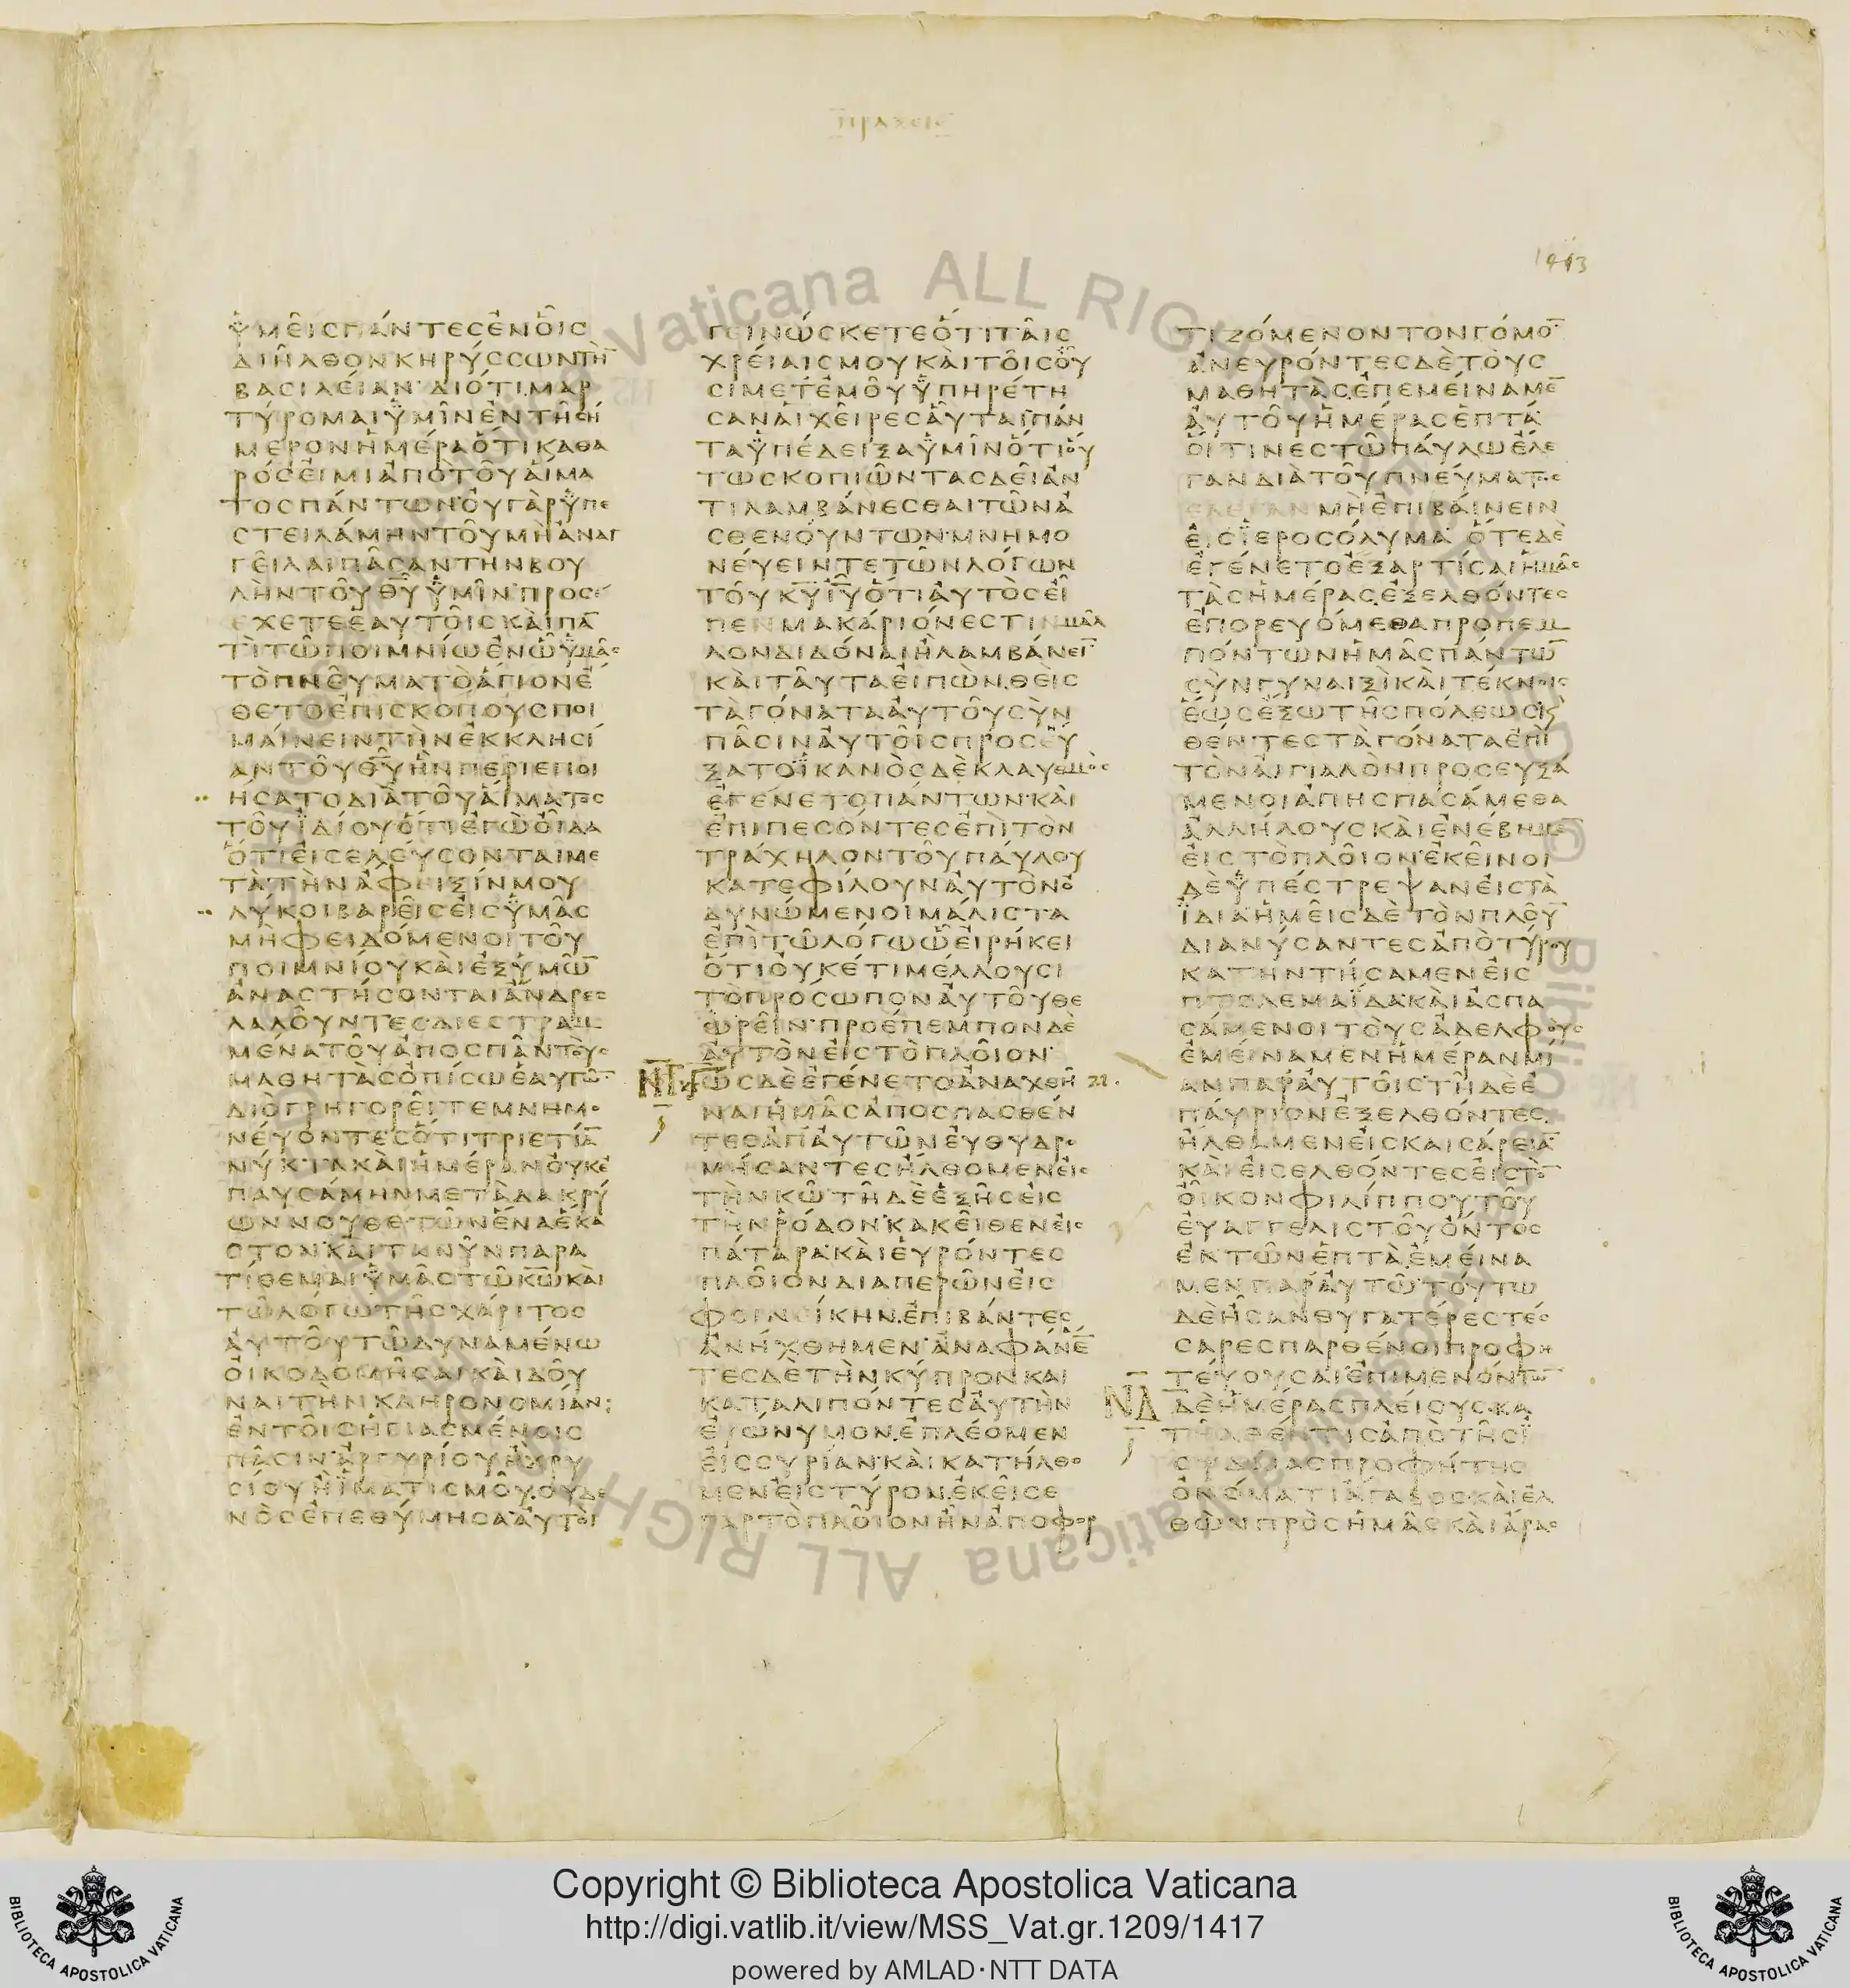 ΠΡΑΞΕΙΣ
1413
ὑμεῖς πάντες ἐν οἷς
διῆλθον κηρύσσων τὴ̅
βασιλείαν· διότι μαρ
τύρομαι ὑμῖν ἐν τῇ σή
μερον ἡμέρα ὅτι καθα
ρός εἰμι ἀπὸ τοῦ αἵμα
τος πάντων· οὐ γὰρ ὑπε
στειλάμην τοῦ μὴ ἀναγ
γεῖλαι πᾶσαν τὴν βου
λὴν τοῦ θ̅υ̅ ὑμῖν· προσέ
χετε ἑαυτοῖς καὶ πα̅
τὶ τῶ ποιμνίω ἐν ὧ ὑμᾶς
τὸ πνεῦμα τὸ ἅγιον ἔ
θετο ἐπισκόπους ποι
μαίνειν τὴν ἐκκλησί
αν τοῦ θ̅υ̅ ἣν περιεποι
ήσατο διὰ τοῦ αἵματος
τοῦ ἰδίου ὅτι ἐγὼ οἶδα
ὅτι εἰσελεύσονται με
τὰ τὴν ἄφειξίν μου
λύκοι βαρεῖς εἰς ὑμᾶς
μὴ φειδόμενοι τοῦ
ποιμνίου καὶ ἐξ ὑμῶ̅
ἀναστήσονται ἄνδρες
λαλοῦντες διεστραμ
μένα τοῦ ἀποσπᾶν τοὺς
μαθητὰς ὀπίσω ἑαυτῶ̅·
διὸ γρηγορεῖτε μνημο
νεύοντες ὅτι τριετία̅
νύκτα καὶ ἡμέραν οὐκ ἐ
παυσάμην μετὰ δακρύ
ων νουθετῶν ἕνα ἕκα
στον· καὶ τανῦν παρα
τίθεμαι ὑμᾶς τῶ κ̅ω̅ καὶ
τῶ λόγω τῆς χάριτος
αὐτοῦ τῶ δυναμένω
οἰκοδομῆσαι καὶ δοῦ
ναι τὴν κληρονομίαν;
ἐν τοῖς ἡγιασμένοις
πᾶσιν· ἀργυρίου ἢ χρυ
σίου ἢ ἱματισμοῦ οὐδε
νὸς ἐπεθύμησα· αὐτοὶ
γεινώσκετε ὅτι ταῖς
χρείαις μου καὶ τοῖς οὖ
σι μετ' ἐμοῦ ὑπηρέτη
σαν αἱ χεῖρες αὗται πάν
τα ὑπέδειξα ὑμῖν ὅτι οὕ
τως κοπιῶντας δεῖ ἀν
τιλαμβάνεσθαι τῶν ἀ
σθενούντων· μνημο
νεύειν τε τῶν λόγων
τοῦ κ̅υ̅ ι̅υ̅ ὅτι αὐτὸς εἶ
πεν μακάριόν ἐστιν μᾶλ
λον διδόναι ἢ λαμβάνει̅
καὶ ταῦτα εἰπὼν, θεὶς
τὰ γόνατα αὐτοῦ σὺν
πᾶσιν αὐτοῖς προσεύ
ξατο ἱκανὸς δὲ κλαυθμὸς
ἐγένετο πάντων· καὶ
ἐπιπεσόντες ἐπὶ τὸν
τράχηλον τοῦ παύλου
κατεφίλουν αὐτὸν ὀ
δυνώμενοι μάλιστα
ἐπὶ τῶ λόγω ὧ εἰρήκει
ὅτι οὐκέτι μέλλουσι
τὸ πρόσωπον αὐτοῦ θε
ωρεῖν· προέπεμπον δὲ
αὐτὸν εἰς τὸ πλοῖον·
Ν̅Γ̅
ὡς δὲ ἐγένετο ἀναχθῆ
21.
ναι ἡμᾶς ἀποσπασθέν
τες ἀπ' αὐτῶν εὐθυδρο
μήσαντες ἤλθομεν εἰς
τὴν κῶ τῇ δὲ ἑξῆς εἰς
τὴν ῥόδον· κἀκεῖθεν εἰς
πάταρα· καὶ εὑρόντες
πλοῖον διαπερῶν εἰς
φοινείκην, ἐπιβάντες
ἀνήχθημεν· ἀναφάνε̅
τες δὲ τὴν κύπρον καὶ
καταλιπόντες αὐτὴν
εὐώνυμον, ἐπλέομεν
εἰς συρίαν· καὶ κατήλθο
μεν εἰς τύρον, ἐκεῖσε
γὰρ τὸ πλοῖον ἦν ἀποφορ
τιζόμενον τὸν γόμο̅
ἀνευρόντες δὲ τοὺς
μαθητὰς, ἐπεμείναμε̅
αὐτοῦ ἡμέρας ἑπτά·
οἵτινες τῶ παύλω ἔλε
γαν διὰ τοῦ πνεύματος
ελεγαν μὴ ἐπιβαίνειν
εἰς ἱεροσόλυμα· ὅτε δὲ
ἐγένετο ἐξαρτίσαι ἡμᾶς
τὰς ἡμέρας, ἐξελθόντες
ἐπορευόμεθα προπεμ
πόντων ἡμᾶς πάντω̅
σὺν γυναιξὶ καὶ τέκνοις
ἕως ἔξω τῆς πόλεως κϳ
θέντες τὰ γόνατα ἐπὶ
τὸν αἰγιαλὸν προσευξά
μενοι ἀπησπασάμεθα
ἀλλήλους καὶ ἐνέβημε̅
εἰς τὸ πλοῖον· ἐκεῖνοι
δὲ ὑπέστρεψαν εἰς τὰ
ἴδια ἡμεῖς δὲ τὸν πλοῦ̅
διανύσαντες ἀπὸ τύρου
κατηντήσαμεν εἰς
πτολεμαΐδα· καὶ ἀσπα
σάμενοι τοὺς ἀδελφοὺς
ἐμείναμεν ἡμέραν μί
αν παρ' αὐτοῖς τῇ δὲ ἐ
παύριον ἐξελθόντες,
ἤλθαμεν εἰς καισάρεια̅
καὶ εἰσελθόντες εἰς τὸ̅
οἶκον φιλίππου τοῦ
εὐαγγελιστοῦ ὄντος
ἐκ τῶν ἑπτὰ, ἐμείνα
μεν παρ' αὐτῶ· τούτω
δὲ ἦσαν θυγατέρες τέσ
σαρες παρθένοι προφη
τεύουσαι· ἐπιμενόντω̅
Ν̅Δ̅
δὲ ἡμέρας πλείους κα
τῆλθέν τις ἀπὸ τῆς ἰ
ουδαίας προφήτης
ὀνόματι ἄγαβος· καὶ ἐλ
θὼν πρὸς ἡμᾶς καὶ ἄρας
Copyright © Biblioteca Apostolica Vaticana
http://digi.vatlib.it/view/MSS_Vat.gr.1209/1417
powered by AMLAD·NTT DATA
BIBLIOTECA APOSTOLICA VATICANA
BIBLIOTECA APOSTOLICA VATICANA